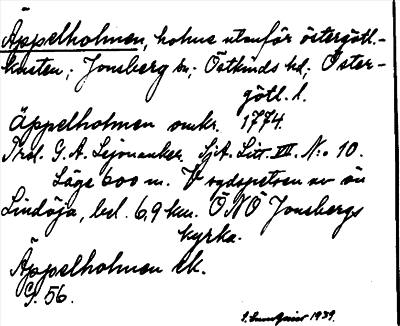 Äppelholmen, holme utanför östergötl.-
kusten; Jonsberg sn; Östkinds hd; Öster-
götl. l.
Äppelholmen omkr. 1774.
G. A. Lejonanker. Sjöt. Litt. VII. No 10.
Läge 600 m. V sydspetsen av ön
Lindöja, bel. 6,9 km. ÖNÖ Jonsbergs
kyrka.
Äppelholmen ek.
S. 56.
1939.